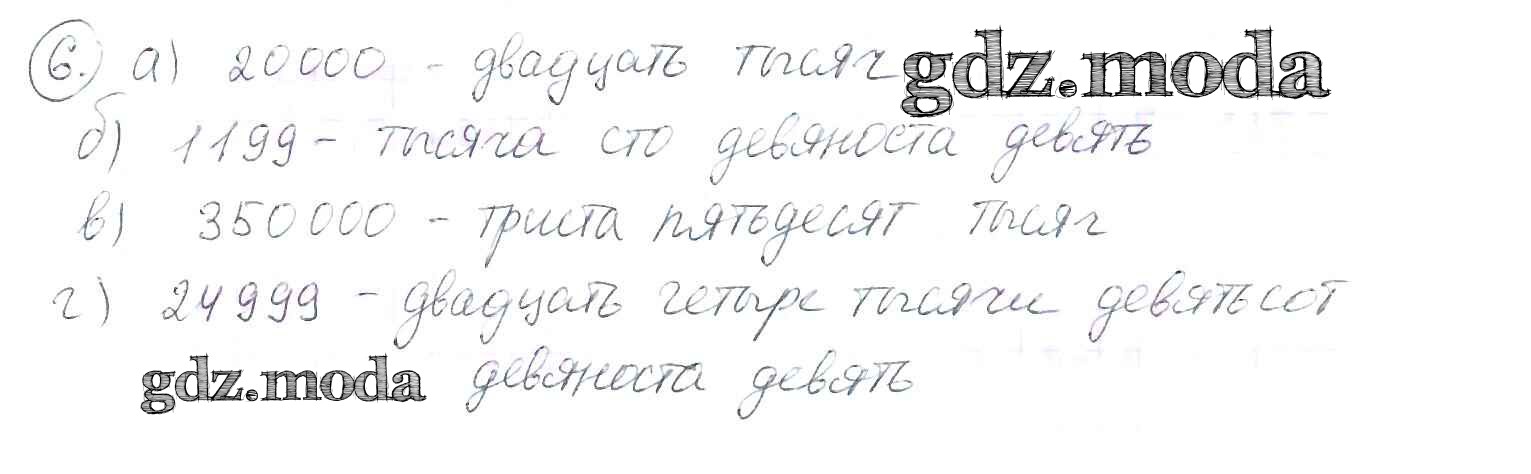 6. а) 20000 - двадцать тысяч gdz.moda
б) 1199 - тысяча сто девяноста девять
в) 350000 - триста пятьдесят тысяч
г) 24999 - двадцать четыре тысячи девятьсот
gdz.moda девяноста девять